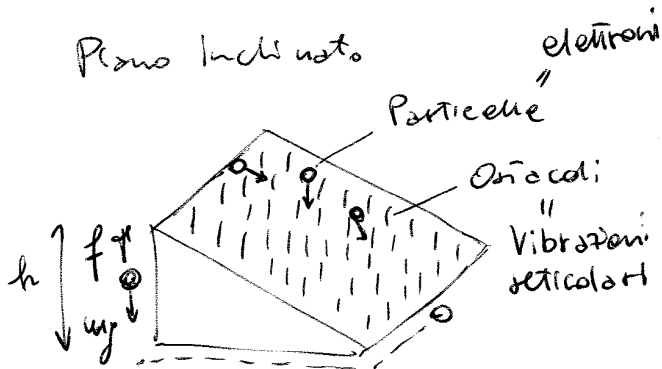 Piano Inclinato
elettroni
"
Particelle
Ostacoli
"
Vibrazioni
reticolari
h
f
mg